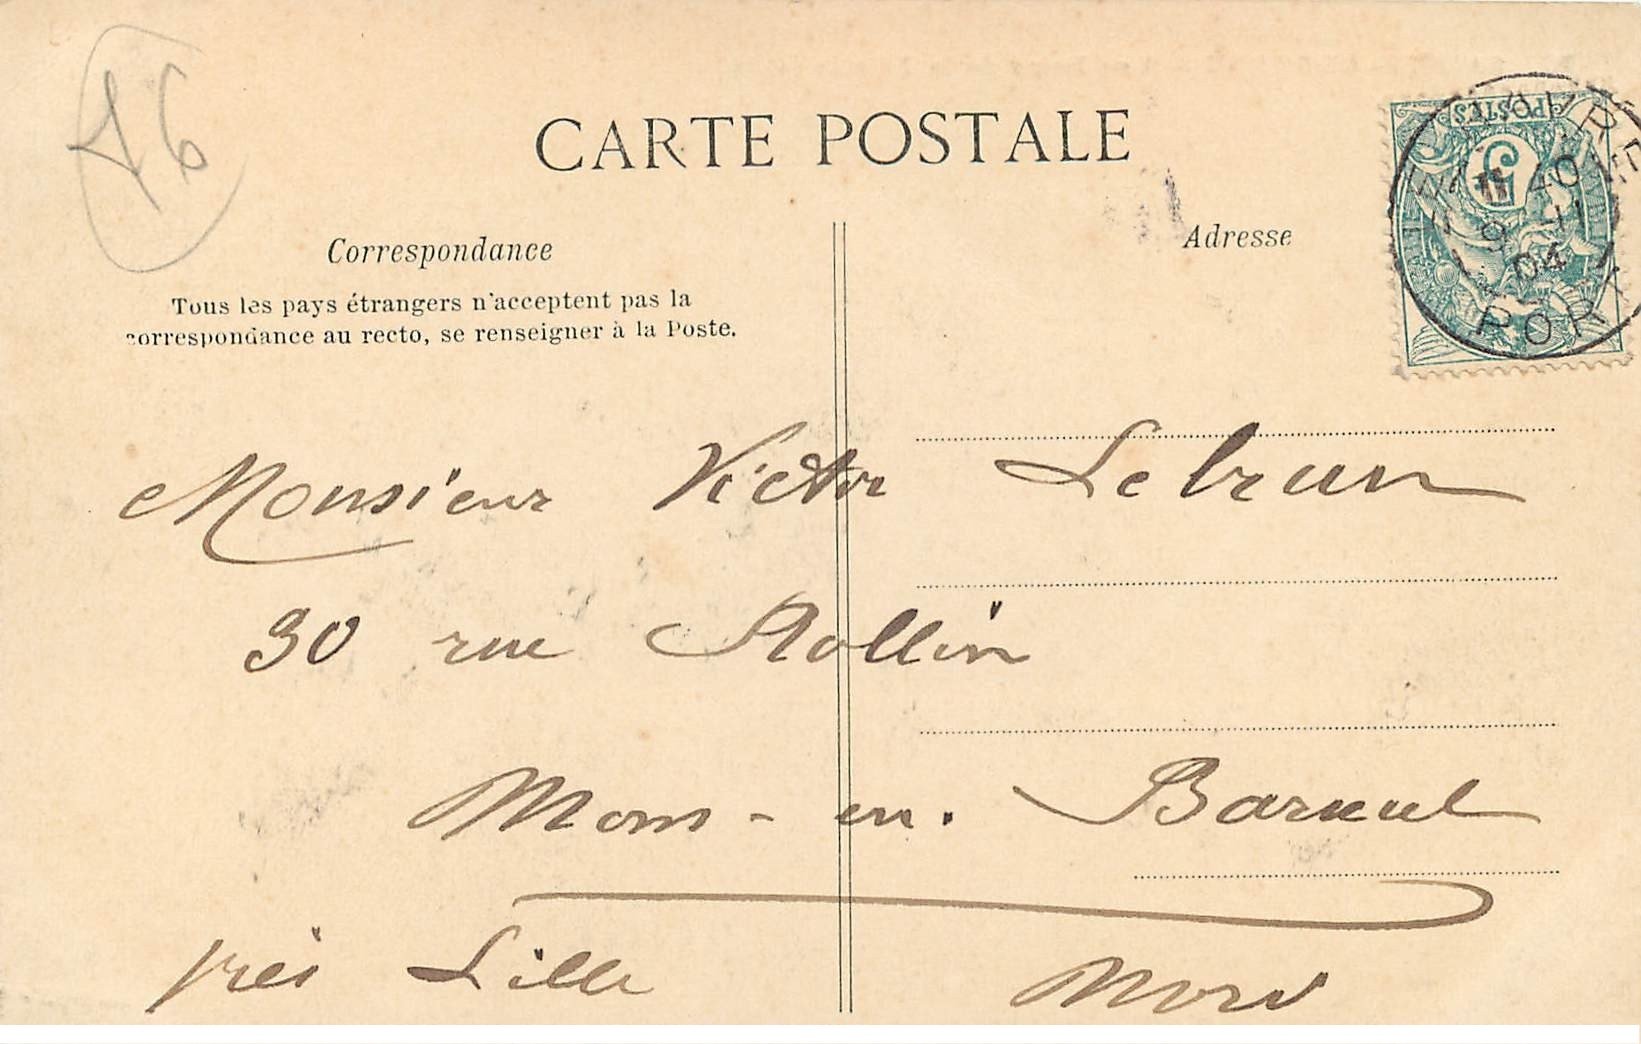 16
CARTE POSTALE
Correspondance
Adresse
Tous les pays étrangers n'acceptent pas la
correspondance au recto, se renseigner à la Poste.
POSTES
5
9 11
04
PORT
Monsieur Victor Lebrun
30 rue Rollin
Mons-en-Baroeul
près Lille Nord